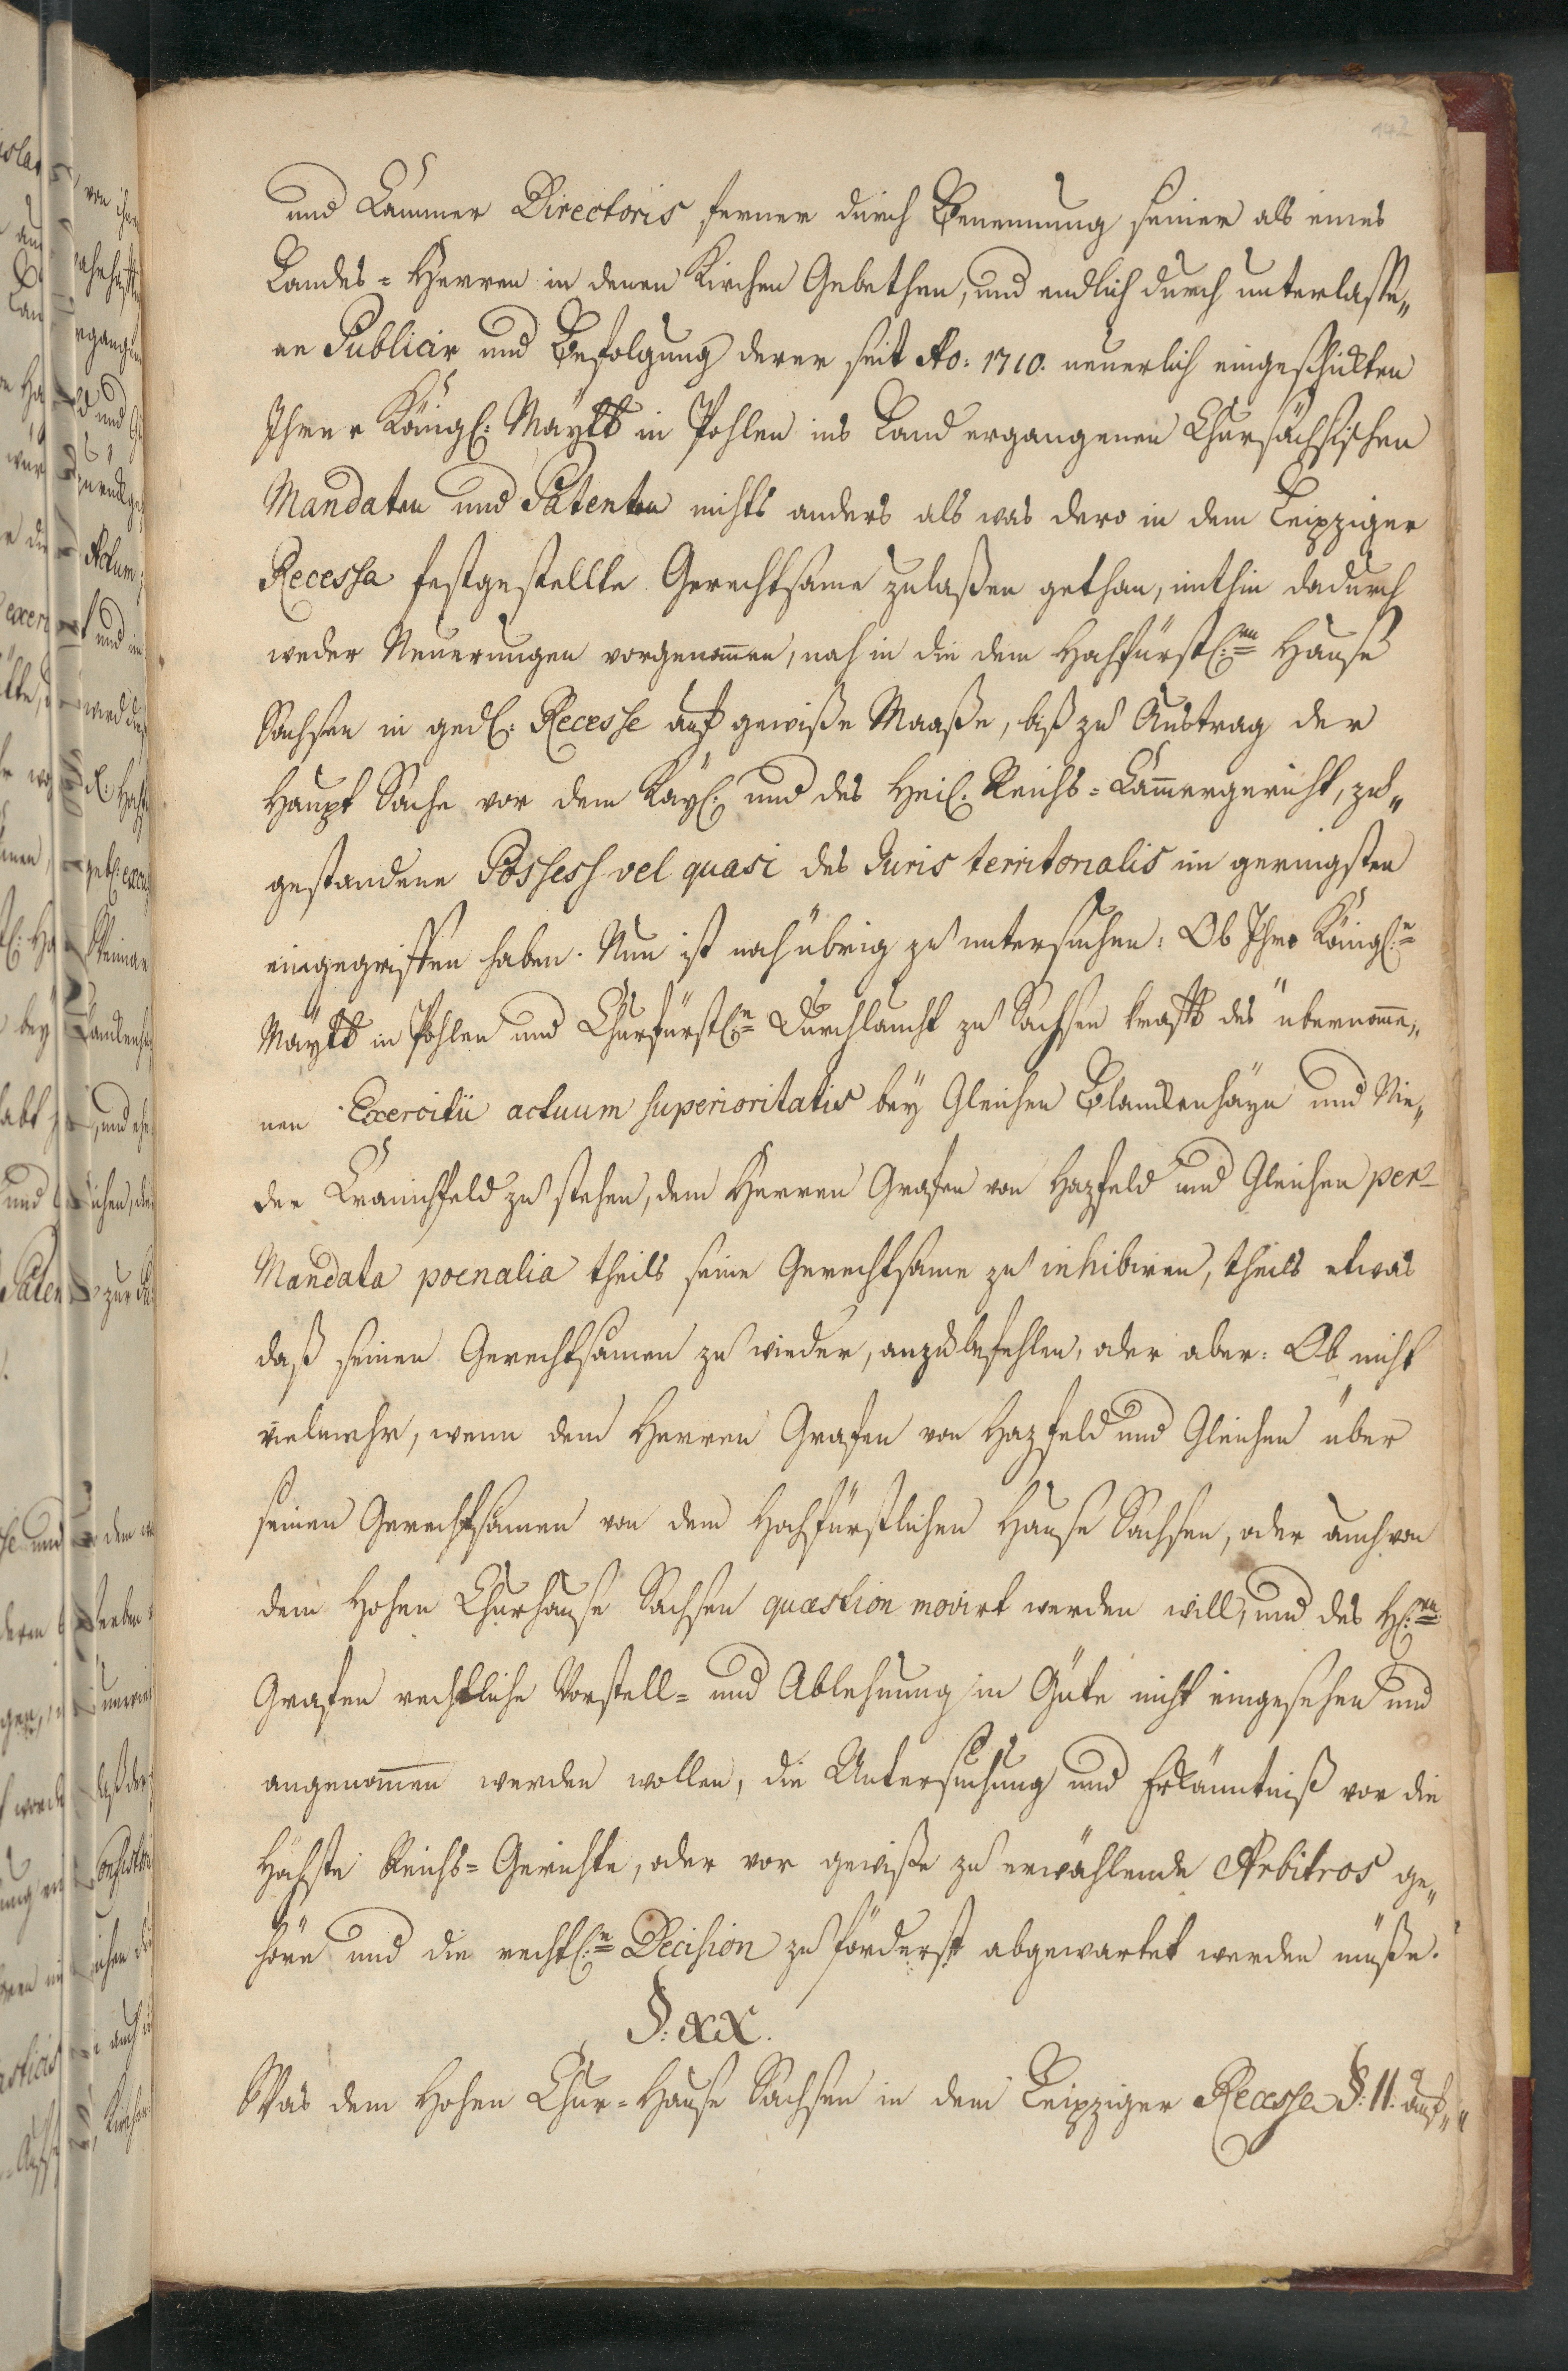 142
und Cammer Directoris ferner durch Benennung seiner als eines
Landes= Herren in denen Kirchen Gebethen, und endlich durch unterlasse„
ne Publicir und Befolgung derer seit Ao: 1710. neuerlich eingeschickten
Ihrer Königl: Maÿtt in Pohlen ins Land ergangenen Chursächsischen
Mandaten und Patenten nichts anders als was dero in dem Leipziger
Recesse festgestellte Gerechtsame zulaßen gethan, mithin dadurch
weder Neuerungen vorgenom̅en, noch in die dem Hochfürstl:en Hauße
Sachsen in gedl: Recesse auf gewiße Maaße, biß zu Austrag der
Haupt Sache vor dem Kaÿl: und des Heil: Reichs= Cam̅ergericht, zu„
gestandene Possess vel quasi des Juris territorialis im geringsten
eingegriffen haben. Nun ist noch übrig zu untersuchen: Ob Ihro Königl:e
Maÿtt in Pohlen und Churfürstl:e Durchlaucht zu Sachsen krafft des übernom̅e„
nen Exercitii actuum superioritatis beÿ Gleichen Blanckenhäyn und Nie„
der Cranichfeld zu stehen, dem Herren Grafen von Hazfeld und Gleichen per
Mandata poenalia theils seine Gerechtsame zu inhibiren, theils etwas
daß seinen Gerechtsamen zu wieder, anzubefehlen, oder aber: Ob nicht
vielmehr, wenn dem Herren Grafen von Hazfeld und Gleichen über
seinen Gerechtsamen von dem Hochfürstlichen Hause Sachsen, oder auch von
dem Hohen Churhause Sachsen quæstion movirt werden will, und des H:en
Grafen rechtliche Vorstell= und Ablehnung in Güte nicht eingesehen und
angenom̅en werden wollen, die Untersuchung und Erkänntniß vor die
Höchste Reichs= Gerichte, oder vor gewiße zu erwählende Arbitros ge„
höre und die rechtl:e Decision zu förderst abgewartet werden müße.
§: XX.
Was dem Hohen Chur= Hause Sachsen in dem Leipziger Recesse §: 11. auf„